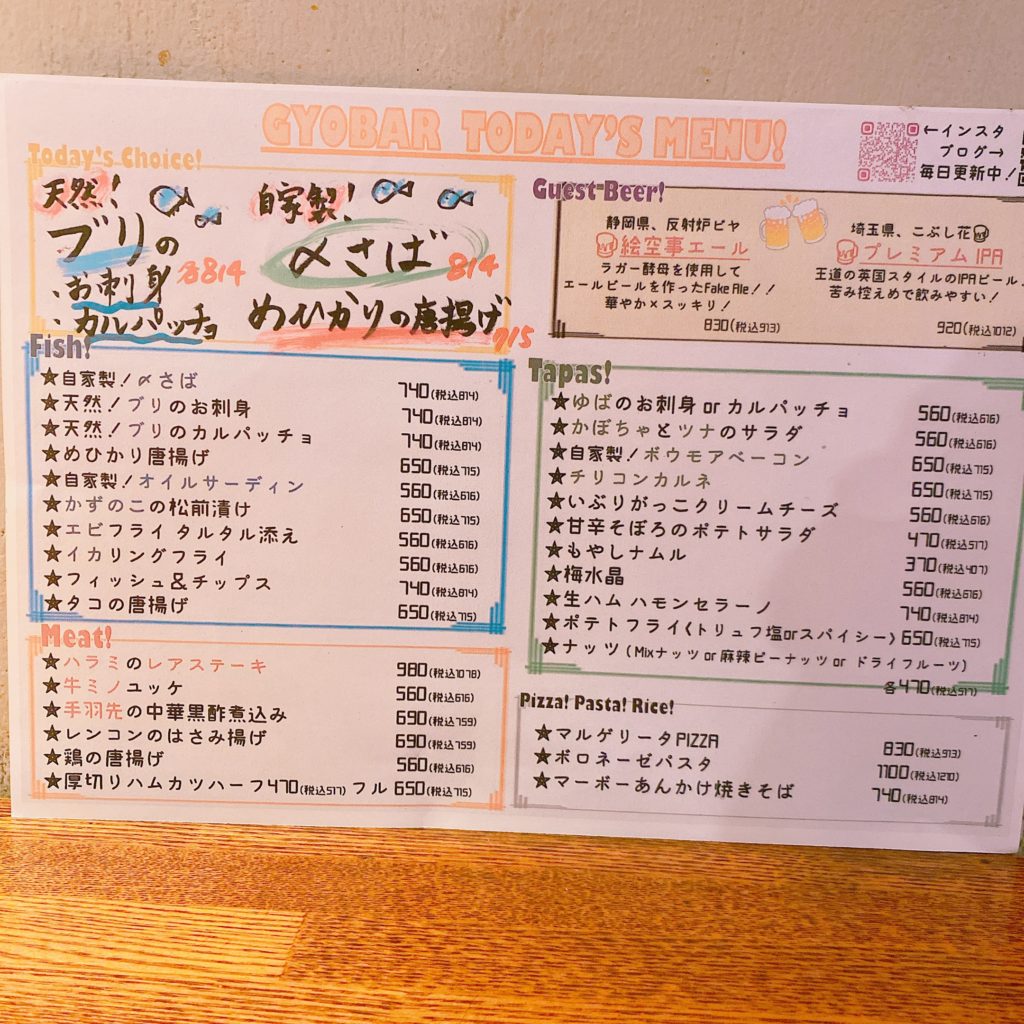 GYOBAR TODAY'S MENU!
←インスタ
ブログ→
毎日更新中!
Today's Choice!
天然!
ブリの
・お刺身 各814
・カルパッチョ
自家製!
〆さば 814
めひかりの唐揚げ 715
Guest Beer!
静岡県、反射炉ビヤ
絵空事エール
ラガー酵母を使用して
エールビールを作ったFake Ale!!
華やか×スッキリ!
830(税込913)
埼玉県、こぶし花
プレミアム IPA
王道の英国スタイルのIPAビール。
苦み控えめで飲みやすい!
920(税込1012)
Fish!
★自家製!〆さば 740(税込814)
★天然!ブリのお刺身 740(税込814)
★天然!ブリのカルパッチョ 740(税込814)
★めひかり唐揚げ 650(税込715)
★自家製!オイルサーディン 560(税込616)
★かずのこの松前漬け 650(税込715)
★エビフライ タルタル添え 560(税込616)
★イカリングフライ 560(税込616)
★フィッシュ&チップス 740(税込814)
★タコの唐揚げ 650(税込715)
Meat!
★ハラミのレアステーキ 980(税込1078)
★牛ミノユッケ 560(税込616)
★手羽先の中華黒酢煮込み 690(税込759)
★レンコンのはさみ揚げ 690(税込759)
★鶏の唐揚げ 560(税込616)
★厚切りハムカツハーフ470(税込517) フル 650(税込715)
Tapas!
★ゆばのお刺身 or カルパッチョ 560(税込616)
★かぼちゃとツナのサラダ 560(税込616)
★自家製!ボウモアベーコン 650(税込715)
★チリコンカルネ 650(税込715)
★いぶりがっこクリームチーズ 560(税込616)
★甘辛そぼろのポテトサラダ 470(税込517)
★もやしナムル 370(税込407)
★梅水晶 560(税込616)
★生ハム ハモンセラーノ 740(税込814)
★ポテトフライ(トリュフ塩orスパイシー) 650(税込715)
★ナッツ(Mixナッツ or 麻辣ピーナッツ or ドライフルーツ)
各470(税込517)
Pizza! Pasta! Rice!
★マルゲリータPIZZA 830(税込913)
★ボロネーゼパスタ 1100(税込1210)
★マーボーあんかけ焼きそば 740(税込814)